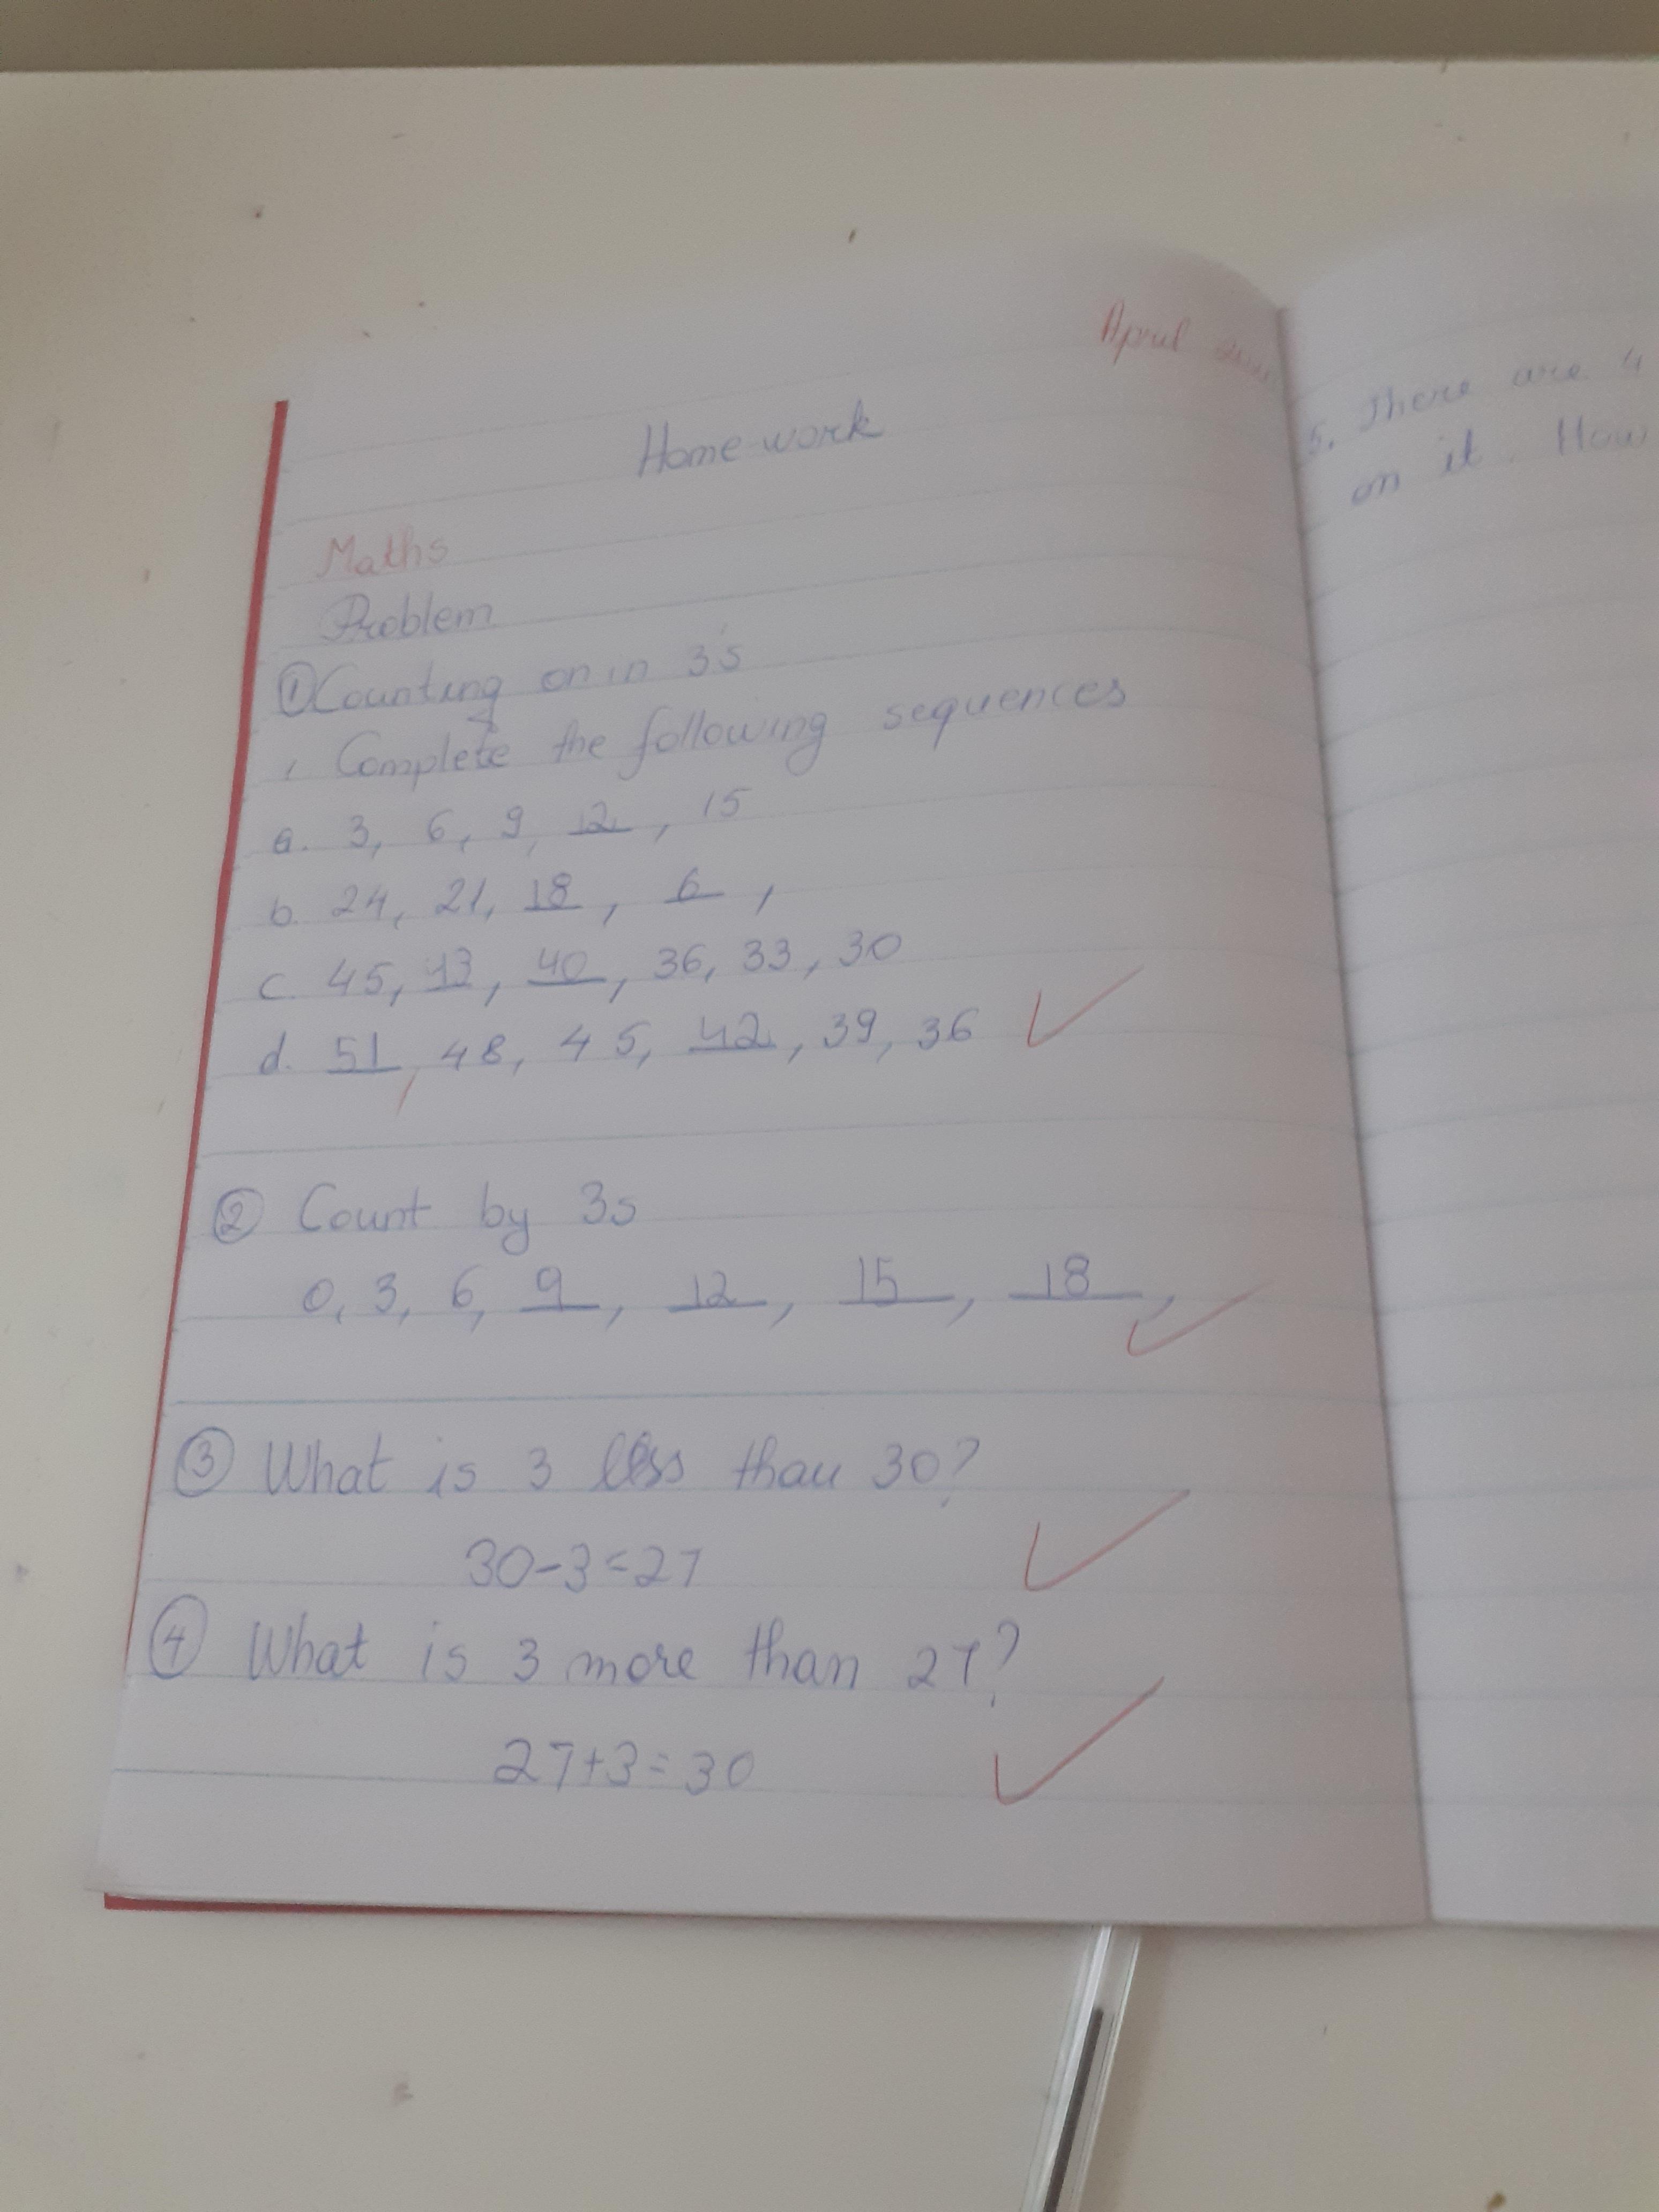 April
Home work
Maths
Problem
① Counting on in 3's
1 Complete the following sequences
a. 3, 6, 9, 12, 15
b. 24, 21, 18, 6,
c. 45, 43, 40, 36, 33, 30
d. 51, 48, 45, 42, 39, 36
② Count by 3s
0, 3, 6, 9, 12, 15, 18,
③ What is 3 less than 30?
30-3=27
④ What is 3 more than 27?
27+3=30
5. There are 4
on it. How